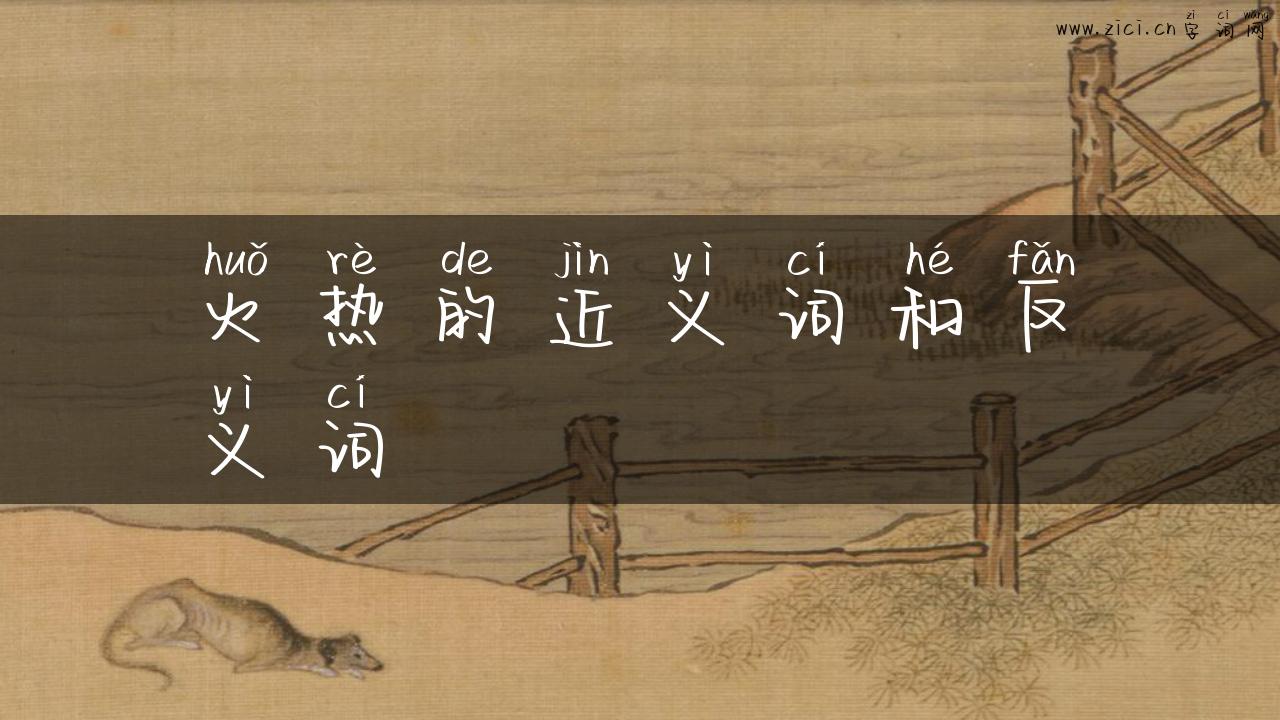 zì cí wǎng
www.zici.cn 字词网
huǒ rè de jìn yì cí hé fǎn
火热的近义词和反
yì cí
义词